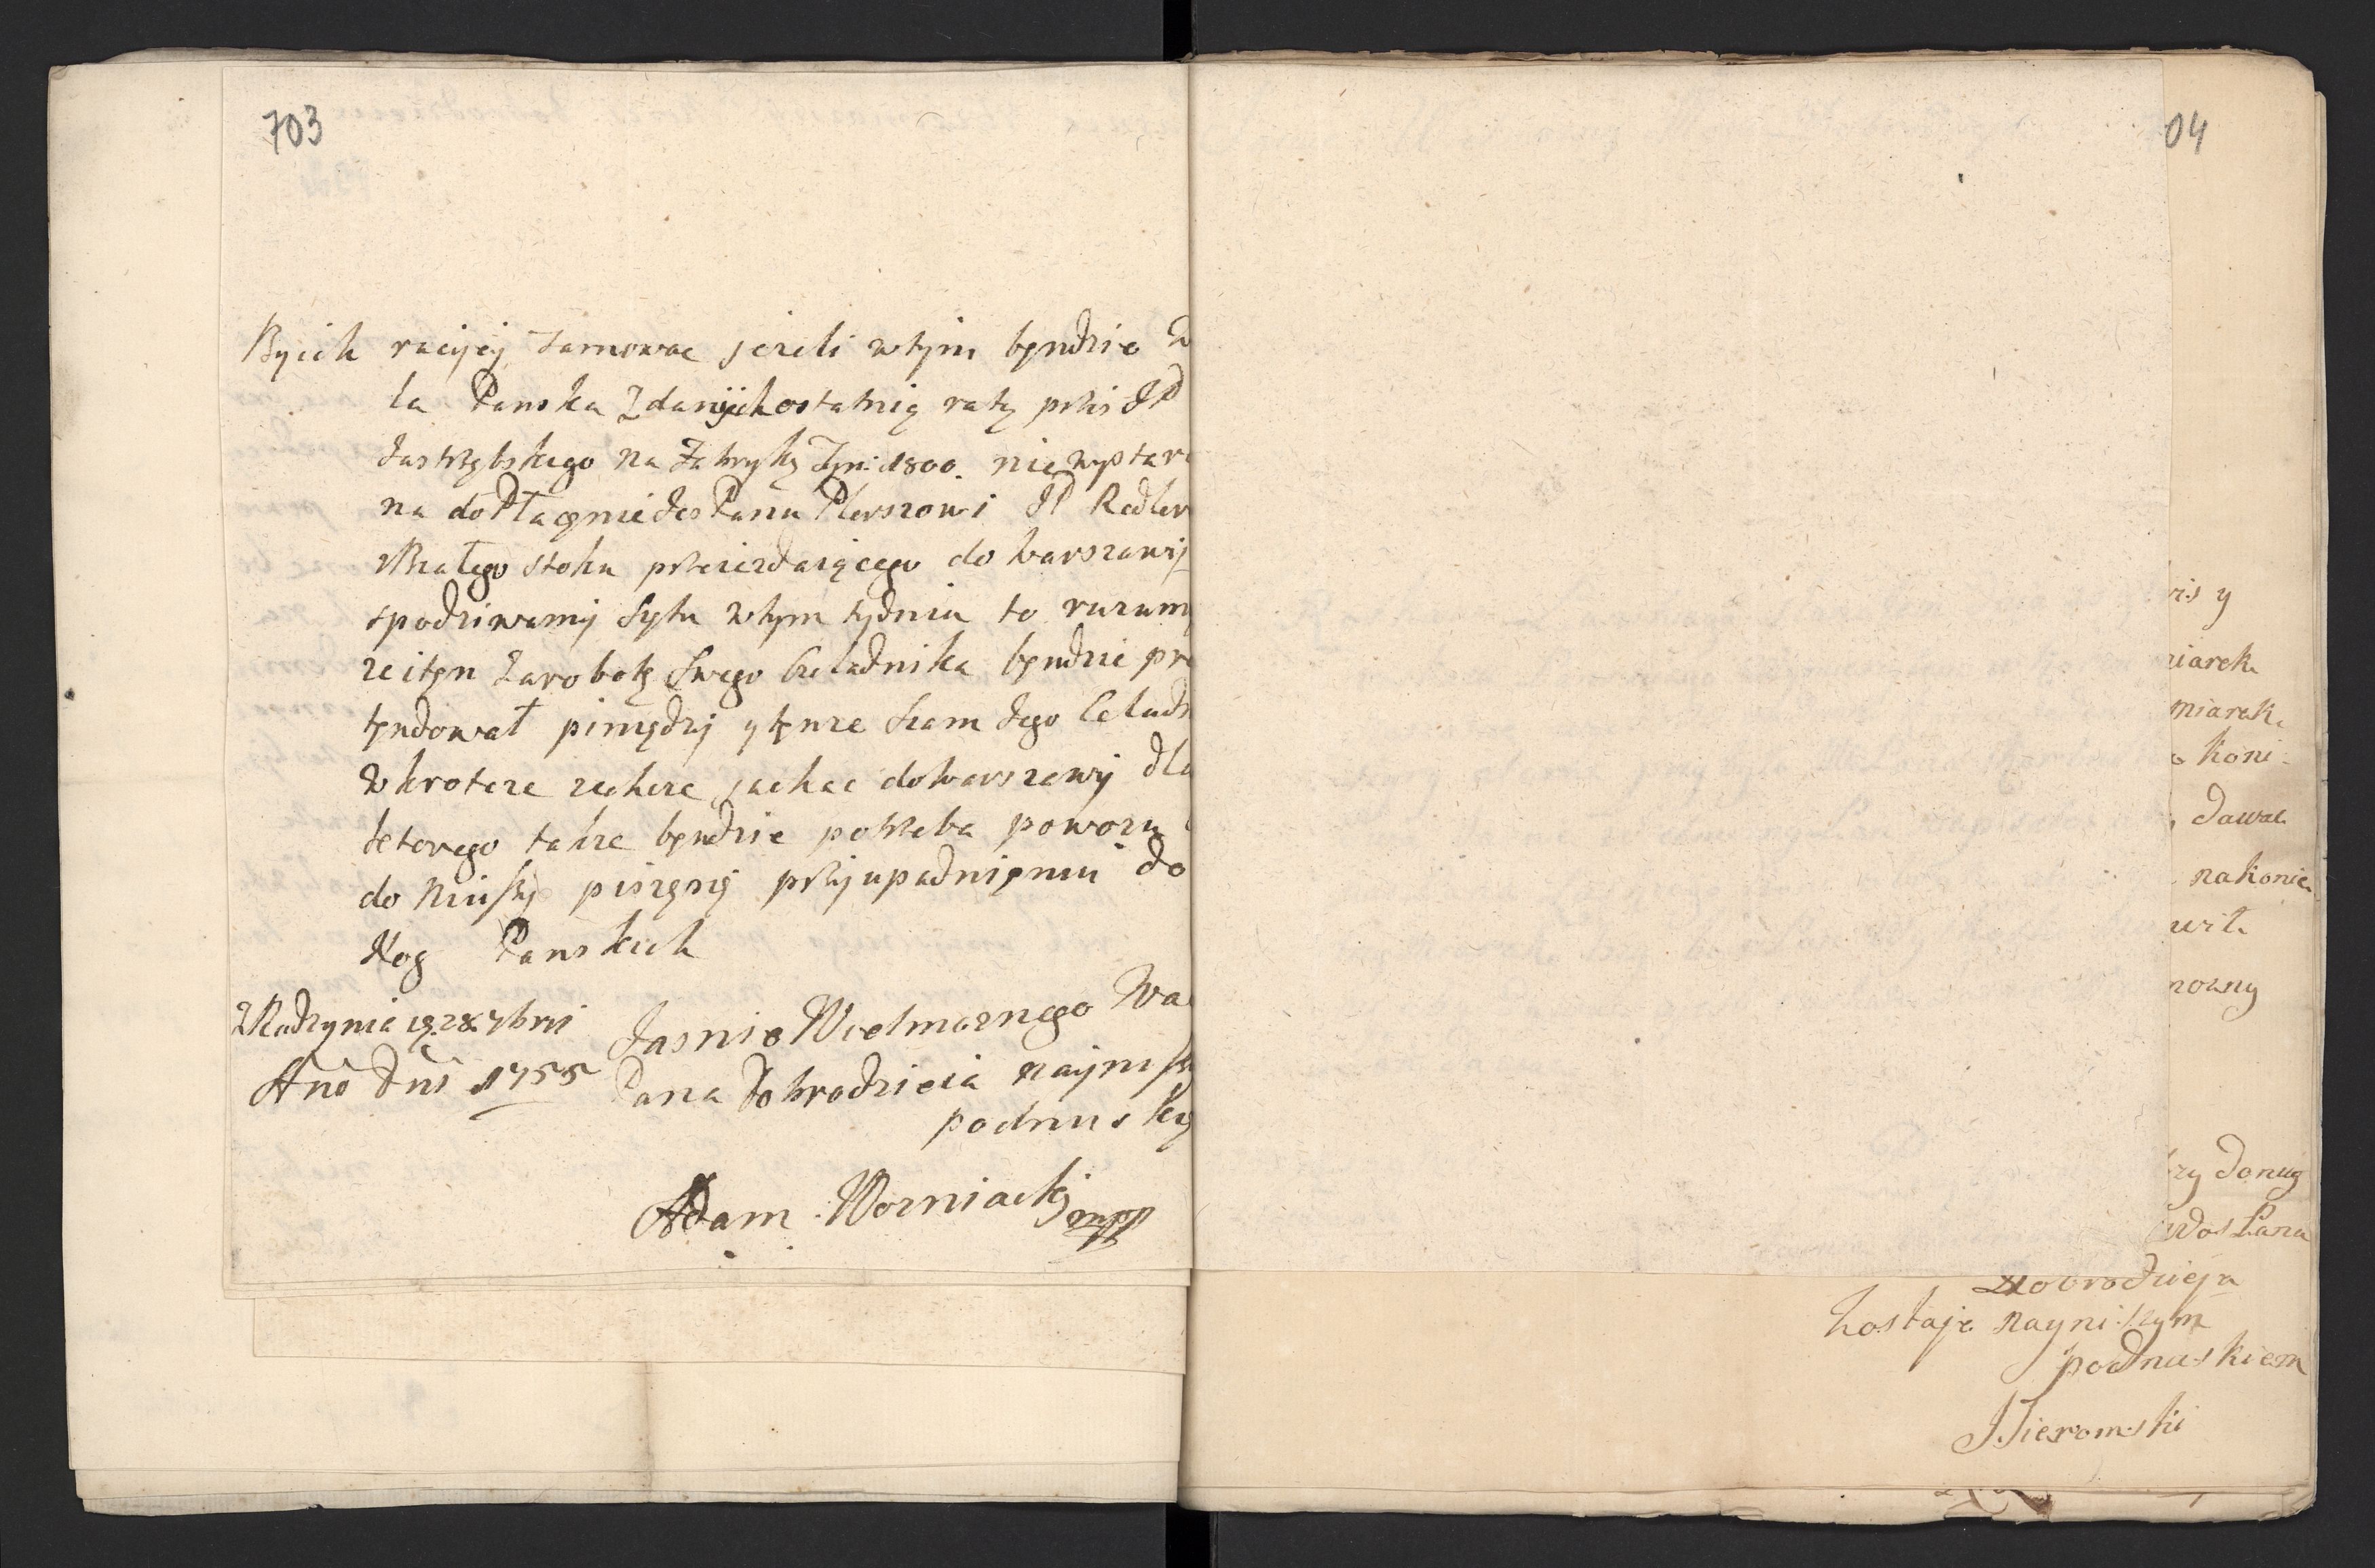 703
Bycih racyey zamowae jezeli wtym bęndzie w
la Panska Zdanychostatnią ratę przes JP
Jastrzębskiego na Fabrykę Tyn: 1800. niewystar
na do Płacęnie Jes Panu Plerszowi JP Redler
zBiałego stoku przeiezdaiącego do Warszawy
spodziwamy Sytu wtym tydniu to rozumy
ze itęn zarobotę swego Czeladnika bęndzie pre
tęndował piniędzy ytęnze Sam Jego Celadn
wkrotcze zechcze jachac dowarszawy dla
ktorego takze bęndzie potrzeba powozu
do Niusky piszęny przyupadnięniu do
Nog Panskich
ZRadzynia 19. 28 7bris
Jasnie Wielmoznego Wa
Ano Dni 1755
Pana Dobrodzieia nayniss
podnuskę
Adam Worniacki mpp
04
ris y
niarek
miarek
koni
dawac
nakonie
urił
nowny
rzy donug
wos Pana
Dobrodzieja
Zostaje nayniszym
podnuskiem
J. Sieromski